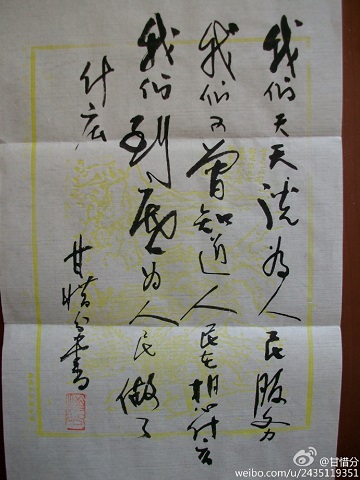 我们天天说为人民服务
我们可曾知道人民在想什么
我们到底为人民做了
什么
甘惜分书
@甘惜分
weibo.com/u/2435119351